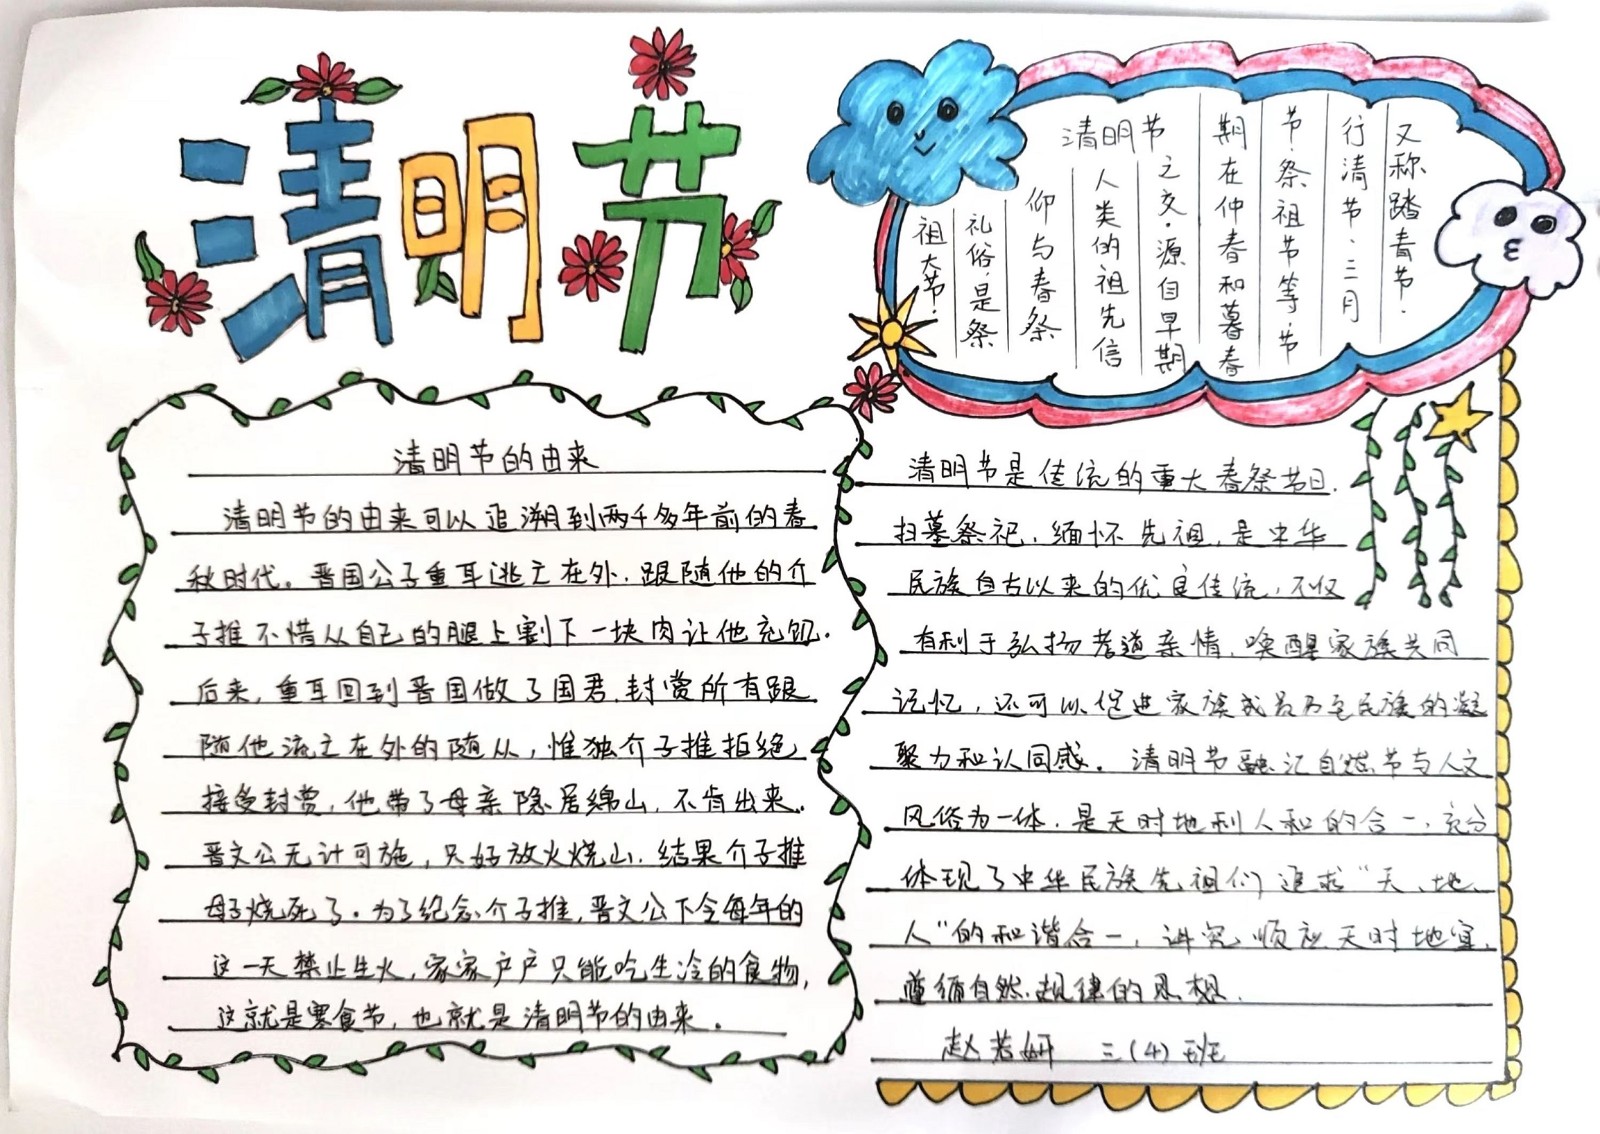 清明节
清明节
又称踏青节.
行清节、三月
节、祭祖节等、节
期在仲春和暮春
之交、源自早期
人类的祖先信
仰与春祭
礼俗、是祭
祖大节.
清明节的由来
清明节的由来可以追溯到两千多年前的春
秋时代。晋国公子重耳逃亡在外，跟随他的介
子推不惜从自己的腿上割下一块肉让他充饥.
后来，重耳回到晋国做了国君，封赏所有跟
随他流亡在外的随从，惟独介子推拒绝
接受封赏，他带了母亲隐居绵山，不肯出来。
晋文公无计可施，只好放火烧山，结果介子推
母子烧死了。为了纪念介子推，晋文公下令每年的
这一天禁止生火，家家户户只能吃生冷的食物，
这就是寒食节，也就是清明节的由来。
清明节是传统的重大春祭节日.
扫墓祭祀、缅怀先祖，是中华
民族自古以来的优良传统，不仅
有利于弘扬孝道亲情，唤醒家族共同
记忆，还可以促进家族成员乃至民族的凝
聚力和认同感。清明节融汇自然节与人文
风俗为一体，是天时地利人和的合一，充分
体现了中华民族先祖们追求“天、地、
人”的和谐合一，讲究顺应天时地宜，
遵循自然规律的思想.
赵若妍 三(4)班